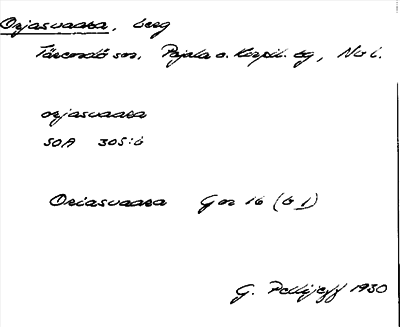 Orjasvaara, berg
Tärendö sn. Pajala o. Korpil. tg, Nb l.
orjasvaara
SOA 305:6
Oriasvaara Gor 16 (b 1)
G. Pellijeff 1930